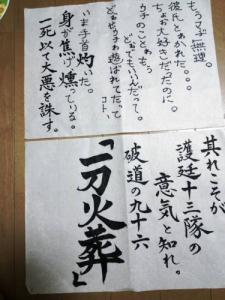 もうマヂ無理。
彼氏とわかれた。。。
ちょお大好きだったのに。
ウチのことゎもう
どおでもいいんだって。
どおせウチゎ遊ばれてたってコト、
いま手首灼いた。
身が焦げ燻っている。
一死以て大悪を誅す。
其れこそが
護廷十三隊の
意気と知れ。
破道の九十六
「一刀火葬」